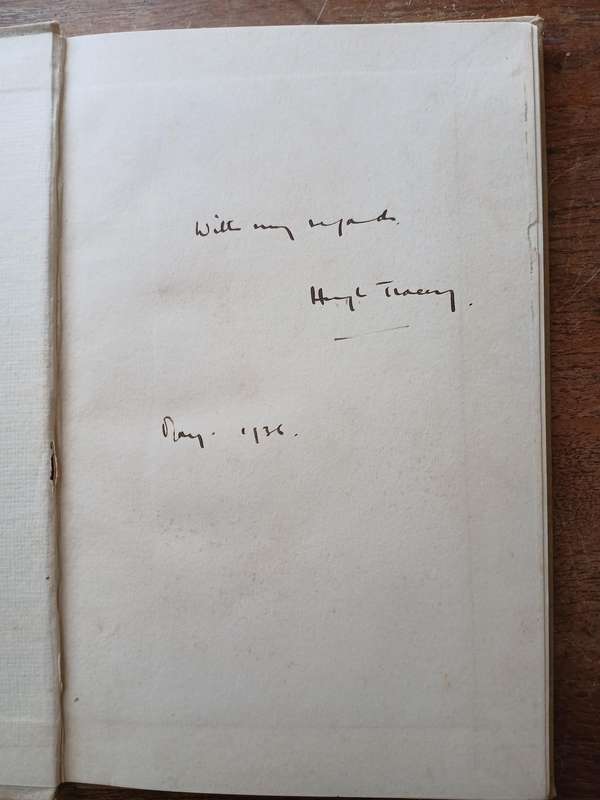 With my regards.
Hugh Tracey.
May. 1936.